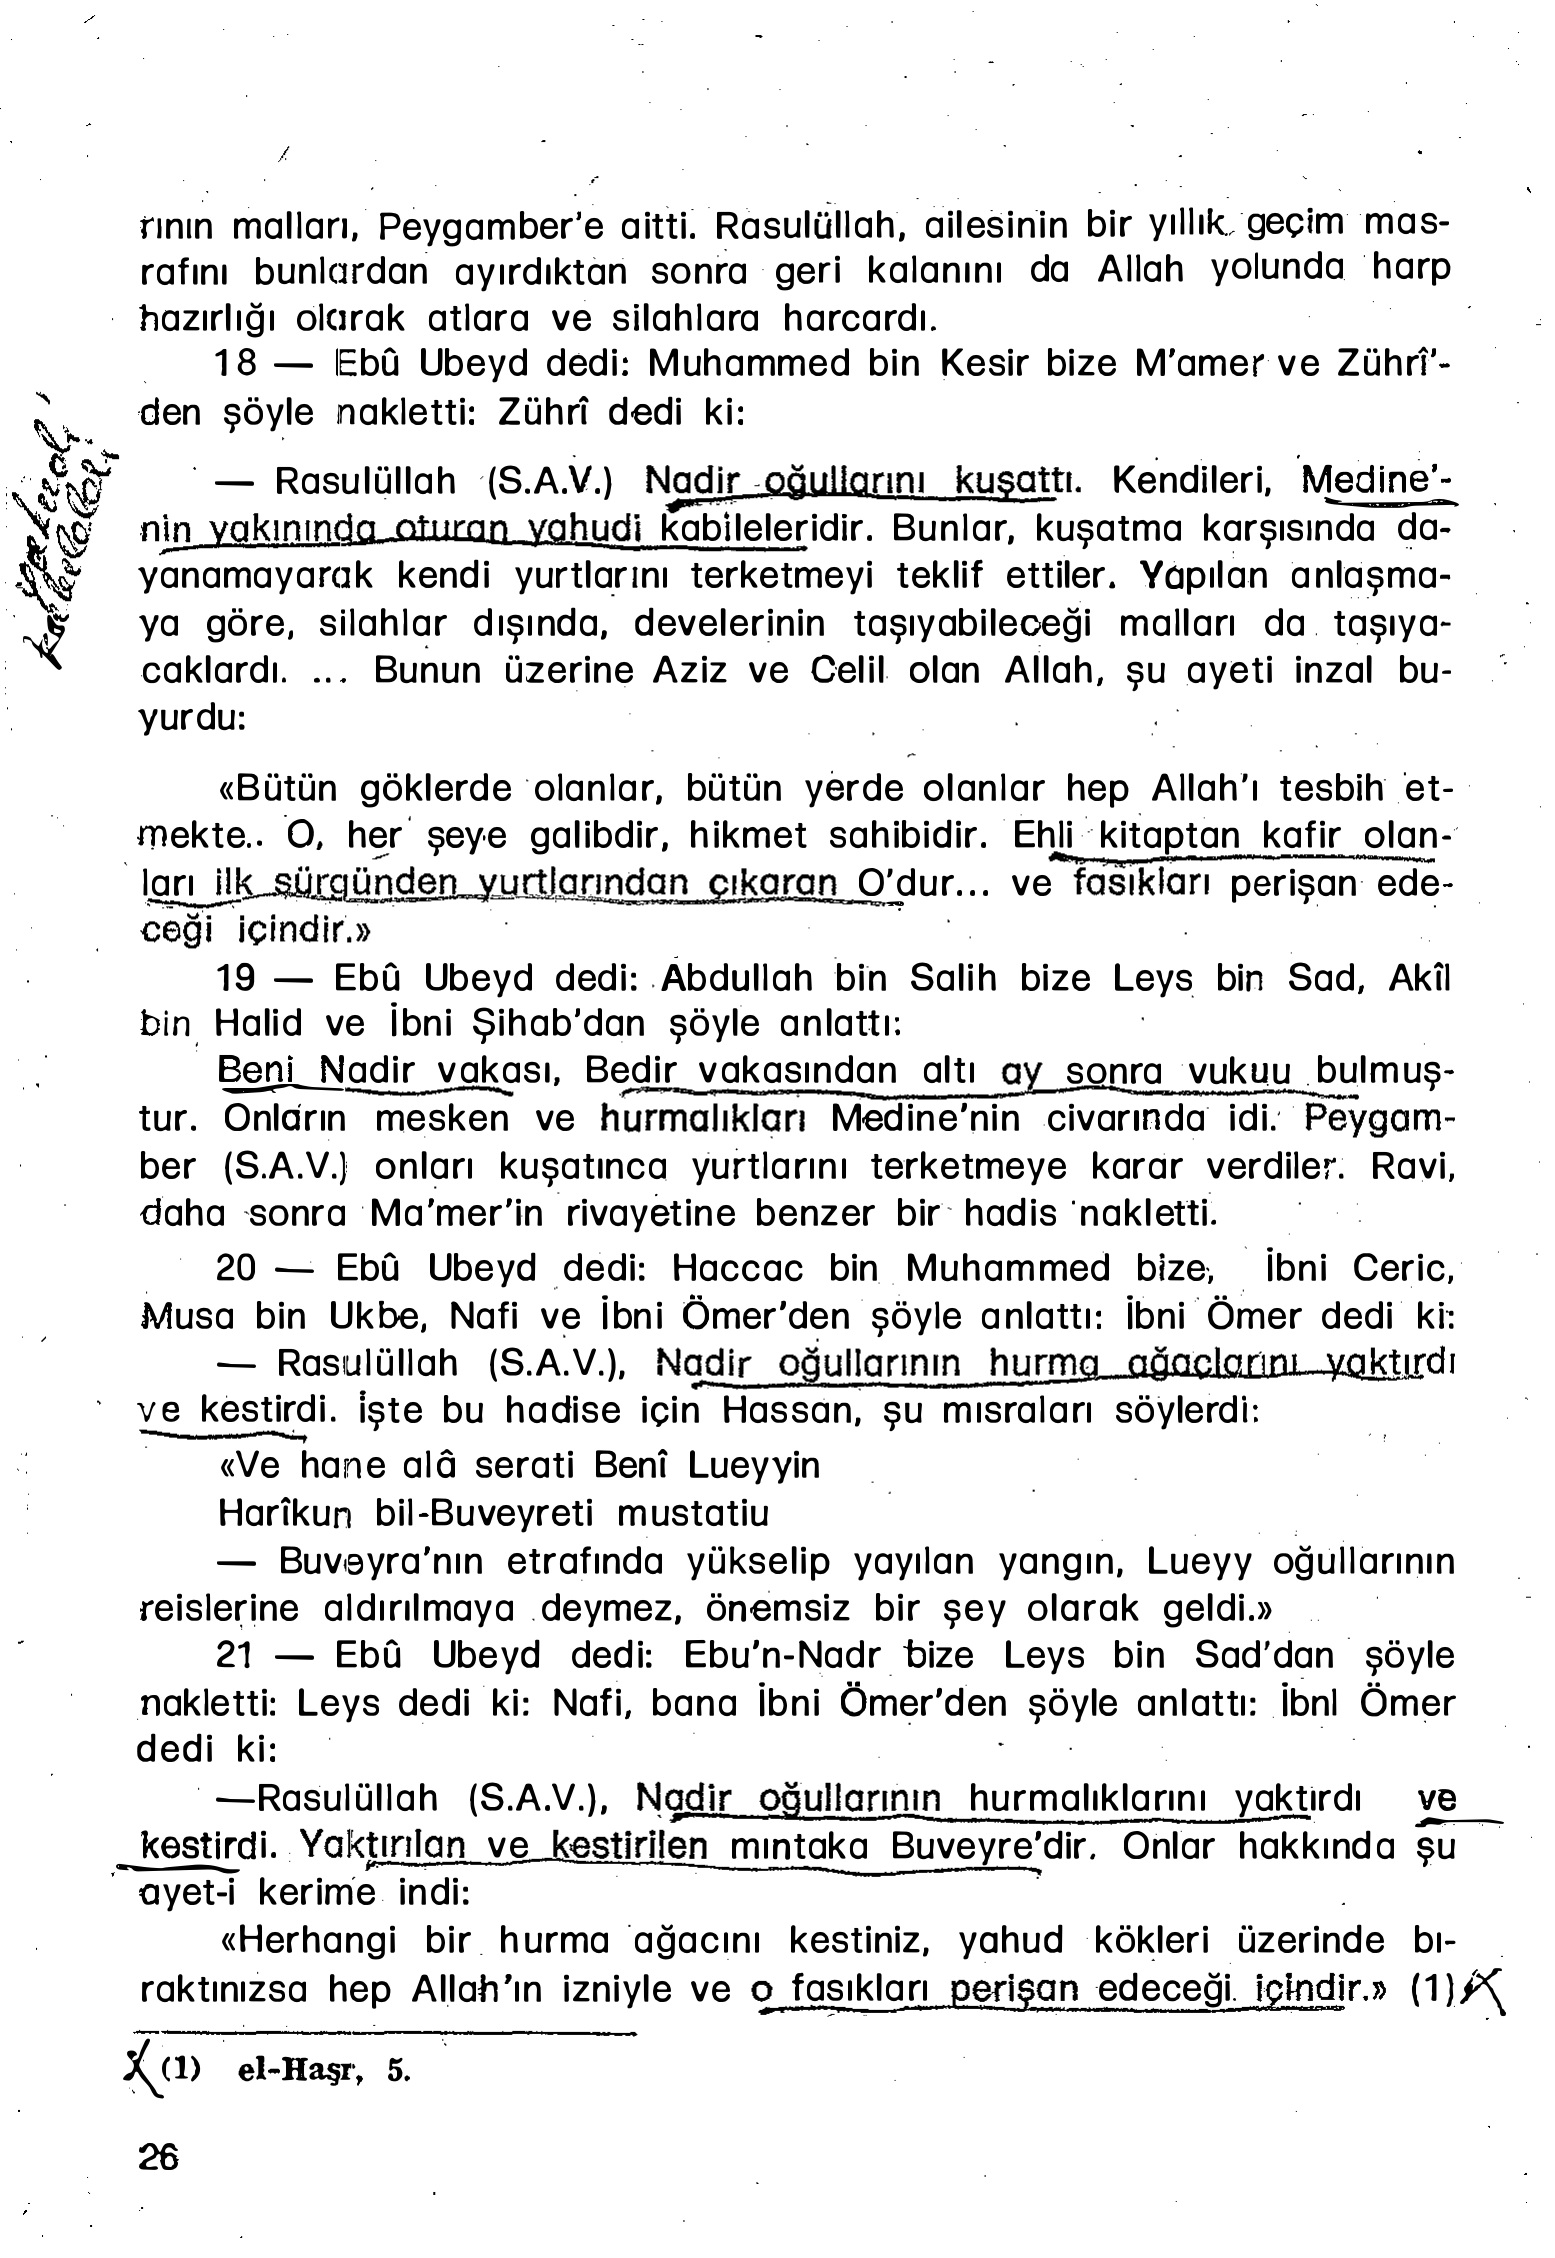 rının malları, Peygamber'e aitti. Rasulüllah, ailesinin bir yıllık geçim mas-
rafını bunlardan ayırdıktan sonra geri kalanını da Allah yolunda harp
hazırlığı olarak atlara ve silahlara harcardı.
18 — Ebû Ubeyd dedi: Muhammed bin Kesir bize M'amer ve Zührî'-
den şöyle nakletti: Zührî dedi ki:
yahudi
kabileleri
— Rasulüllah (S.A.V.) Nadir oğullarını kuşattı. Kendileri, Medine'-
nin yakınında oturan yahudi kabileleridir. Bunlar, kuşatma karşısında da-
yanamayarak kendi yurtlarını terketmeyi teklif ettiler. Yapılan anlaşma-
ya göre, silahlar dışında, develerinin taşıyabileceği malları da taşıya-
caklardı. ... Bunun üzerine Aziz ve Celil olan Allah, şu ayeti inzal bu-
yurdu:
«Bütün göklerde olanlar, bütün yerde olanlar hep Allah'ı tesbih et-
mekte.. O, her şeye galibdir, hikmet sahibidir. Ehli kitaptan kafir olan-
ları ilk sürgünden yurtlarından çıkaran O'dur... ve fasıkları perişan ede-
ceği içindir.»
19 — Ebû Ubeyd dedi: Abdullah bin Salih bize Leys bin Sad, Akîl
bin Halid ve İbni Şihab'dan şöyle anlattı:
Beni Nadir vakası, Bedir vakasından altı ay sonra vukuu bulmuş-
tur. Onların mesken ve hurmalıkları Medine'nin civarında idi. Peygam-
ber (S.A.V.) onları kuşatınca yurtlarını terketmeye karar verdiler. Ravi,
daha sonra Ma'mer'in rivayetine benzer bir hadis nakletti.
20 — Ebû Ubeyd dedi: Haccac bin Muhammed bize, İbni Ceric,
Musa bin Ukbe, Nafi ve İbni Ömer'den şöyle anlattı: İbni Ömer dedi ki:
— Rasulüllah (S.A.V.), Nadir oğullarının hurma ağaçlarını yaktırdı
ve kestirdi. İşte bu hadise için Hassan, şu mısraları söylerdi:
«Ve hane alâ serati Benî Lueyyin
Harîkun bil-Buveyreti mustatiu
— Buveyra'nın etrafında yükselip yayılan yangın, Lueyy oğullarının
reislerine aldırılmaya deymez, önemsiz bir şey olarak geldi.»
21 — Ebû Ubeyd dedi: Ebu'n-Nadr bize Leys bin Sad'dan şöyle
nakletti: Leys dedi ki: Nafi, bana İbni Ömer'den şöyle anlattı: İbnl Ömer
dedi ki:
—Rasulüllah (S.A.V.), Nadir oğullarının hurmalıklarını yaktırdı ve
kestirdi. Yaktırılan ve kestirilen mıntaka Buveyre'dir. Onlar hakkında şu
ayet-i kerime indi:
«Herhangi bir hurma ağacını kestiniz, yahud kökleri üzerinde bı-
raktınızsa hep Allah'ın izniyle ve o fasıkları perişan edeceği içindir.» (1)
(1) el-Haşr, 5.
26